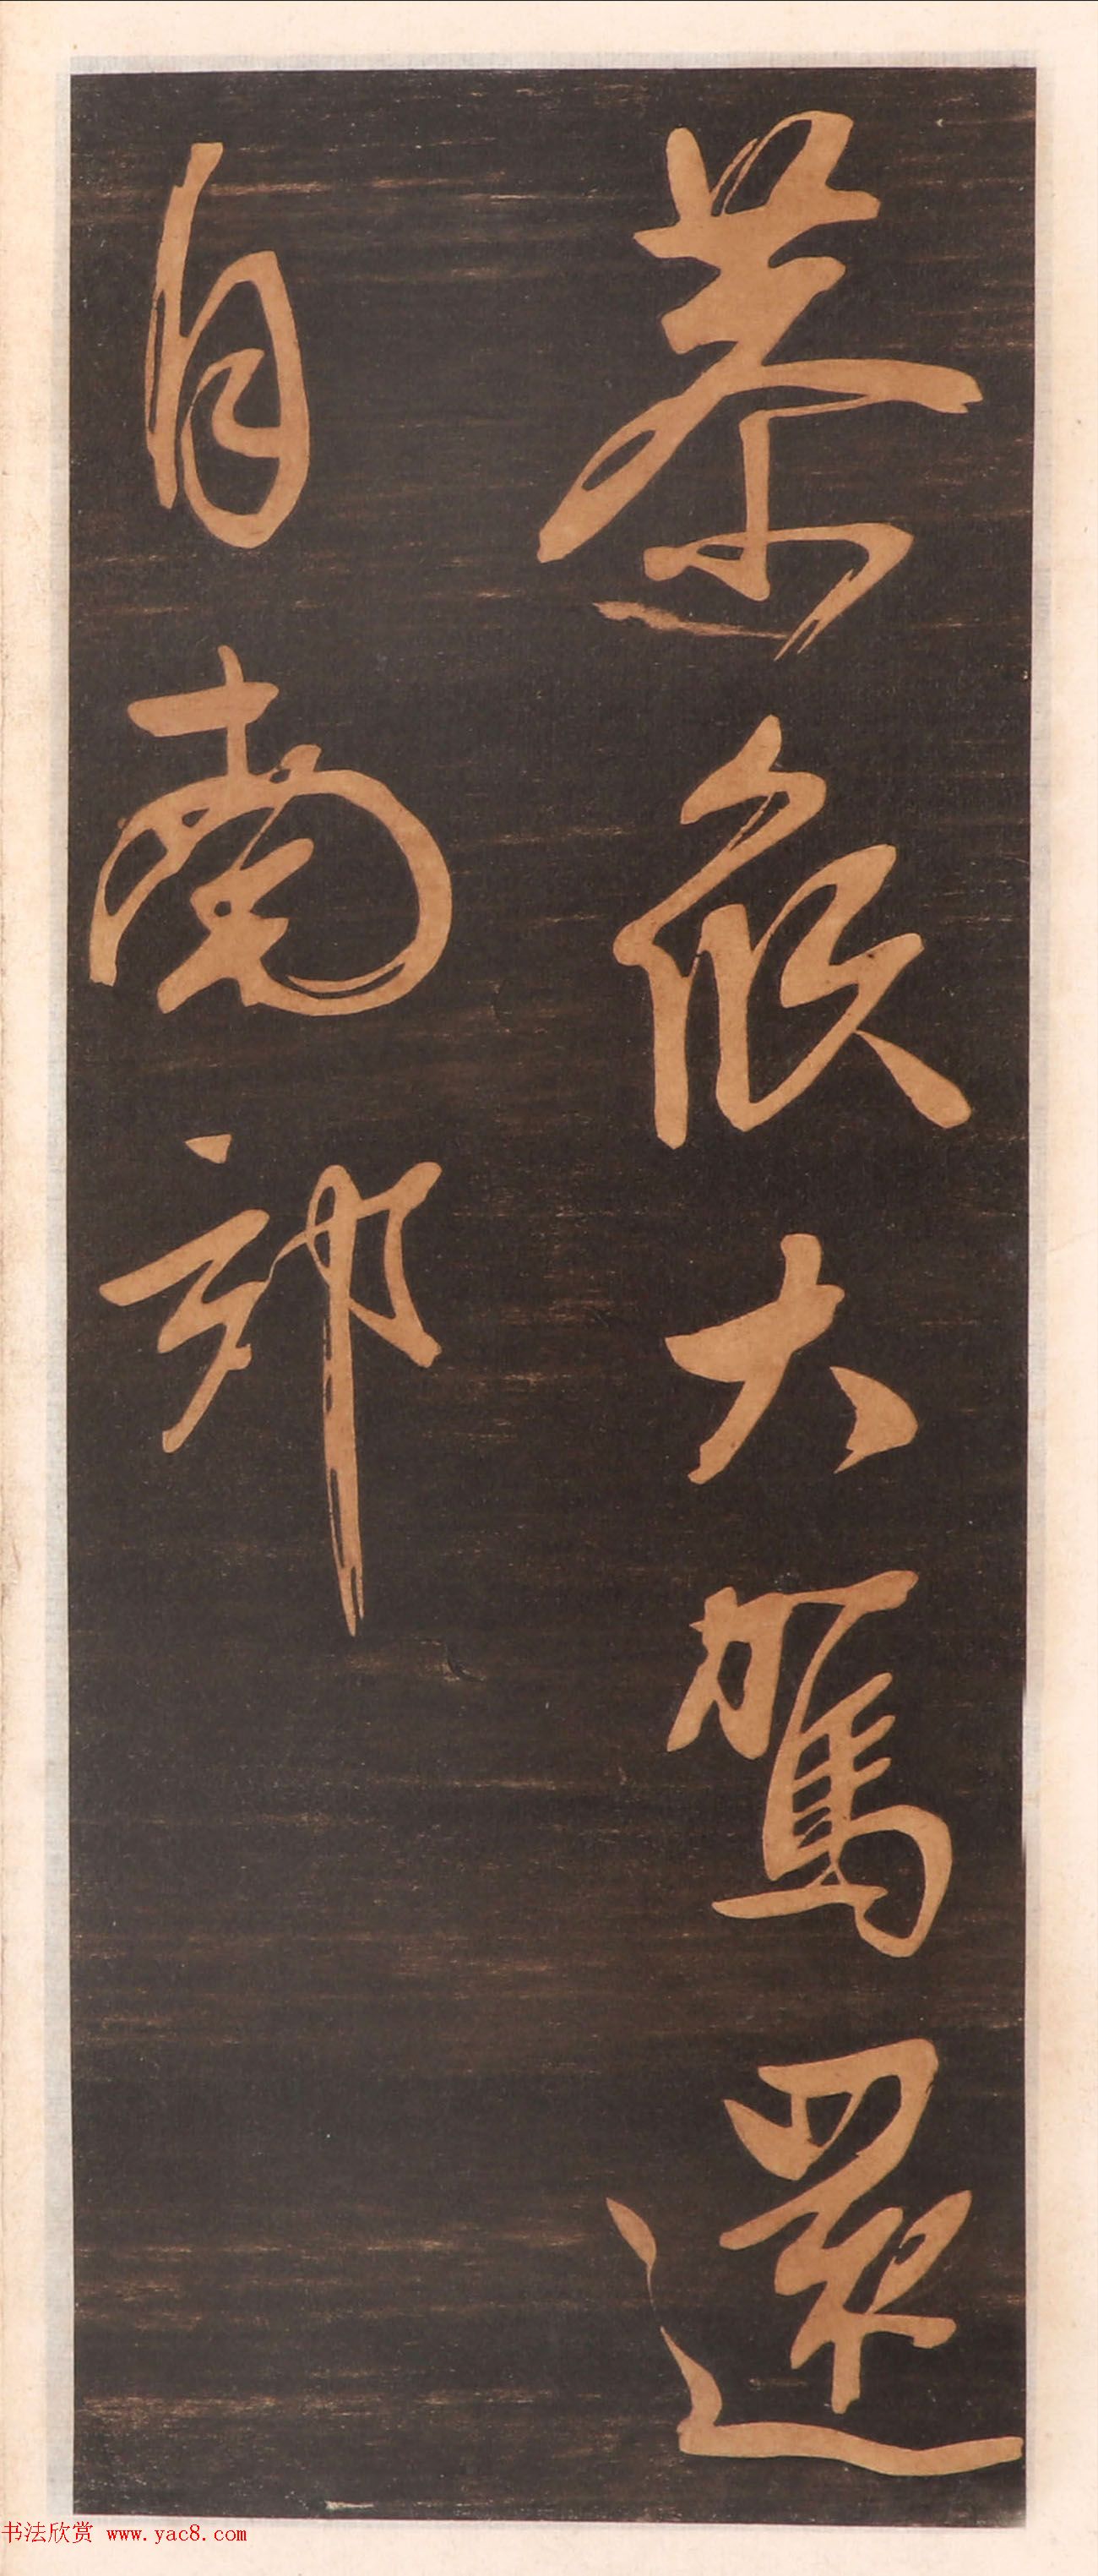 恭候大駕還
自南郊
书法欣赏 www.yac8.com